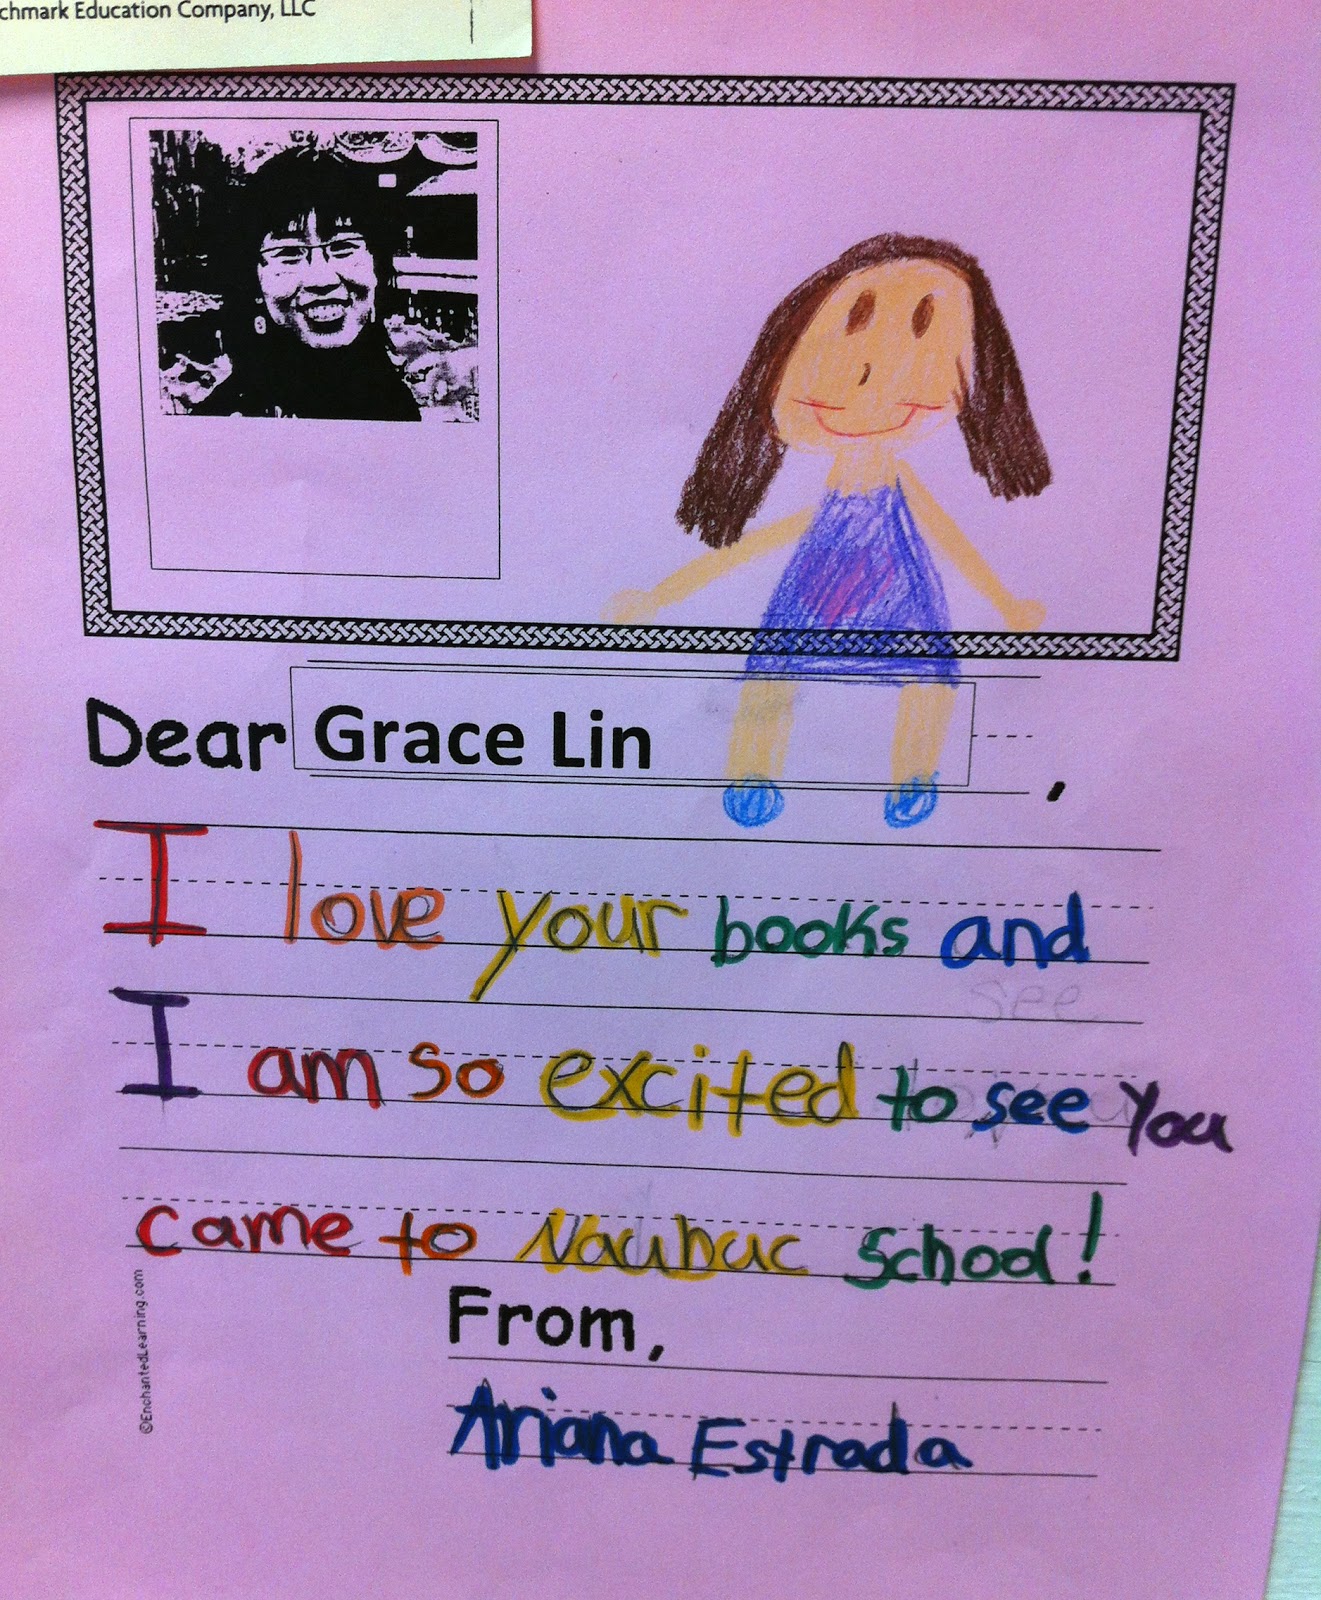 chmark Education Company, LLC
Dear Grace Lin,
I love your books and
see
I am so excited to see you
came to Naubuc School!
©EnchantedLearning.com
From,
Ariana Estrada